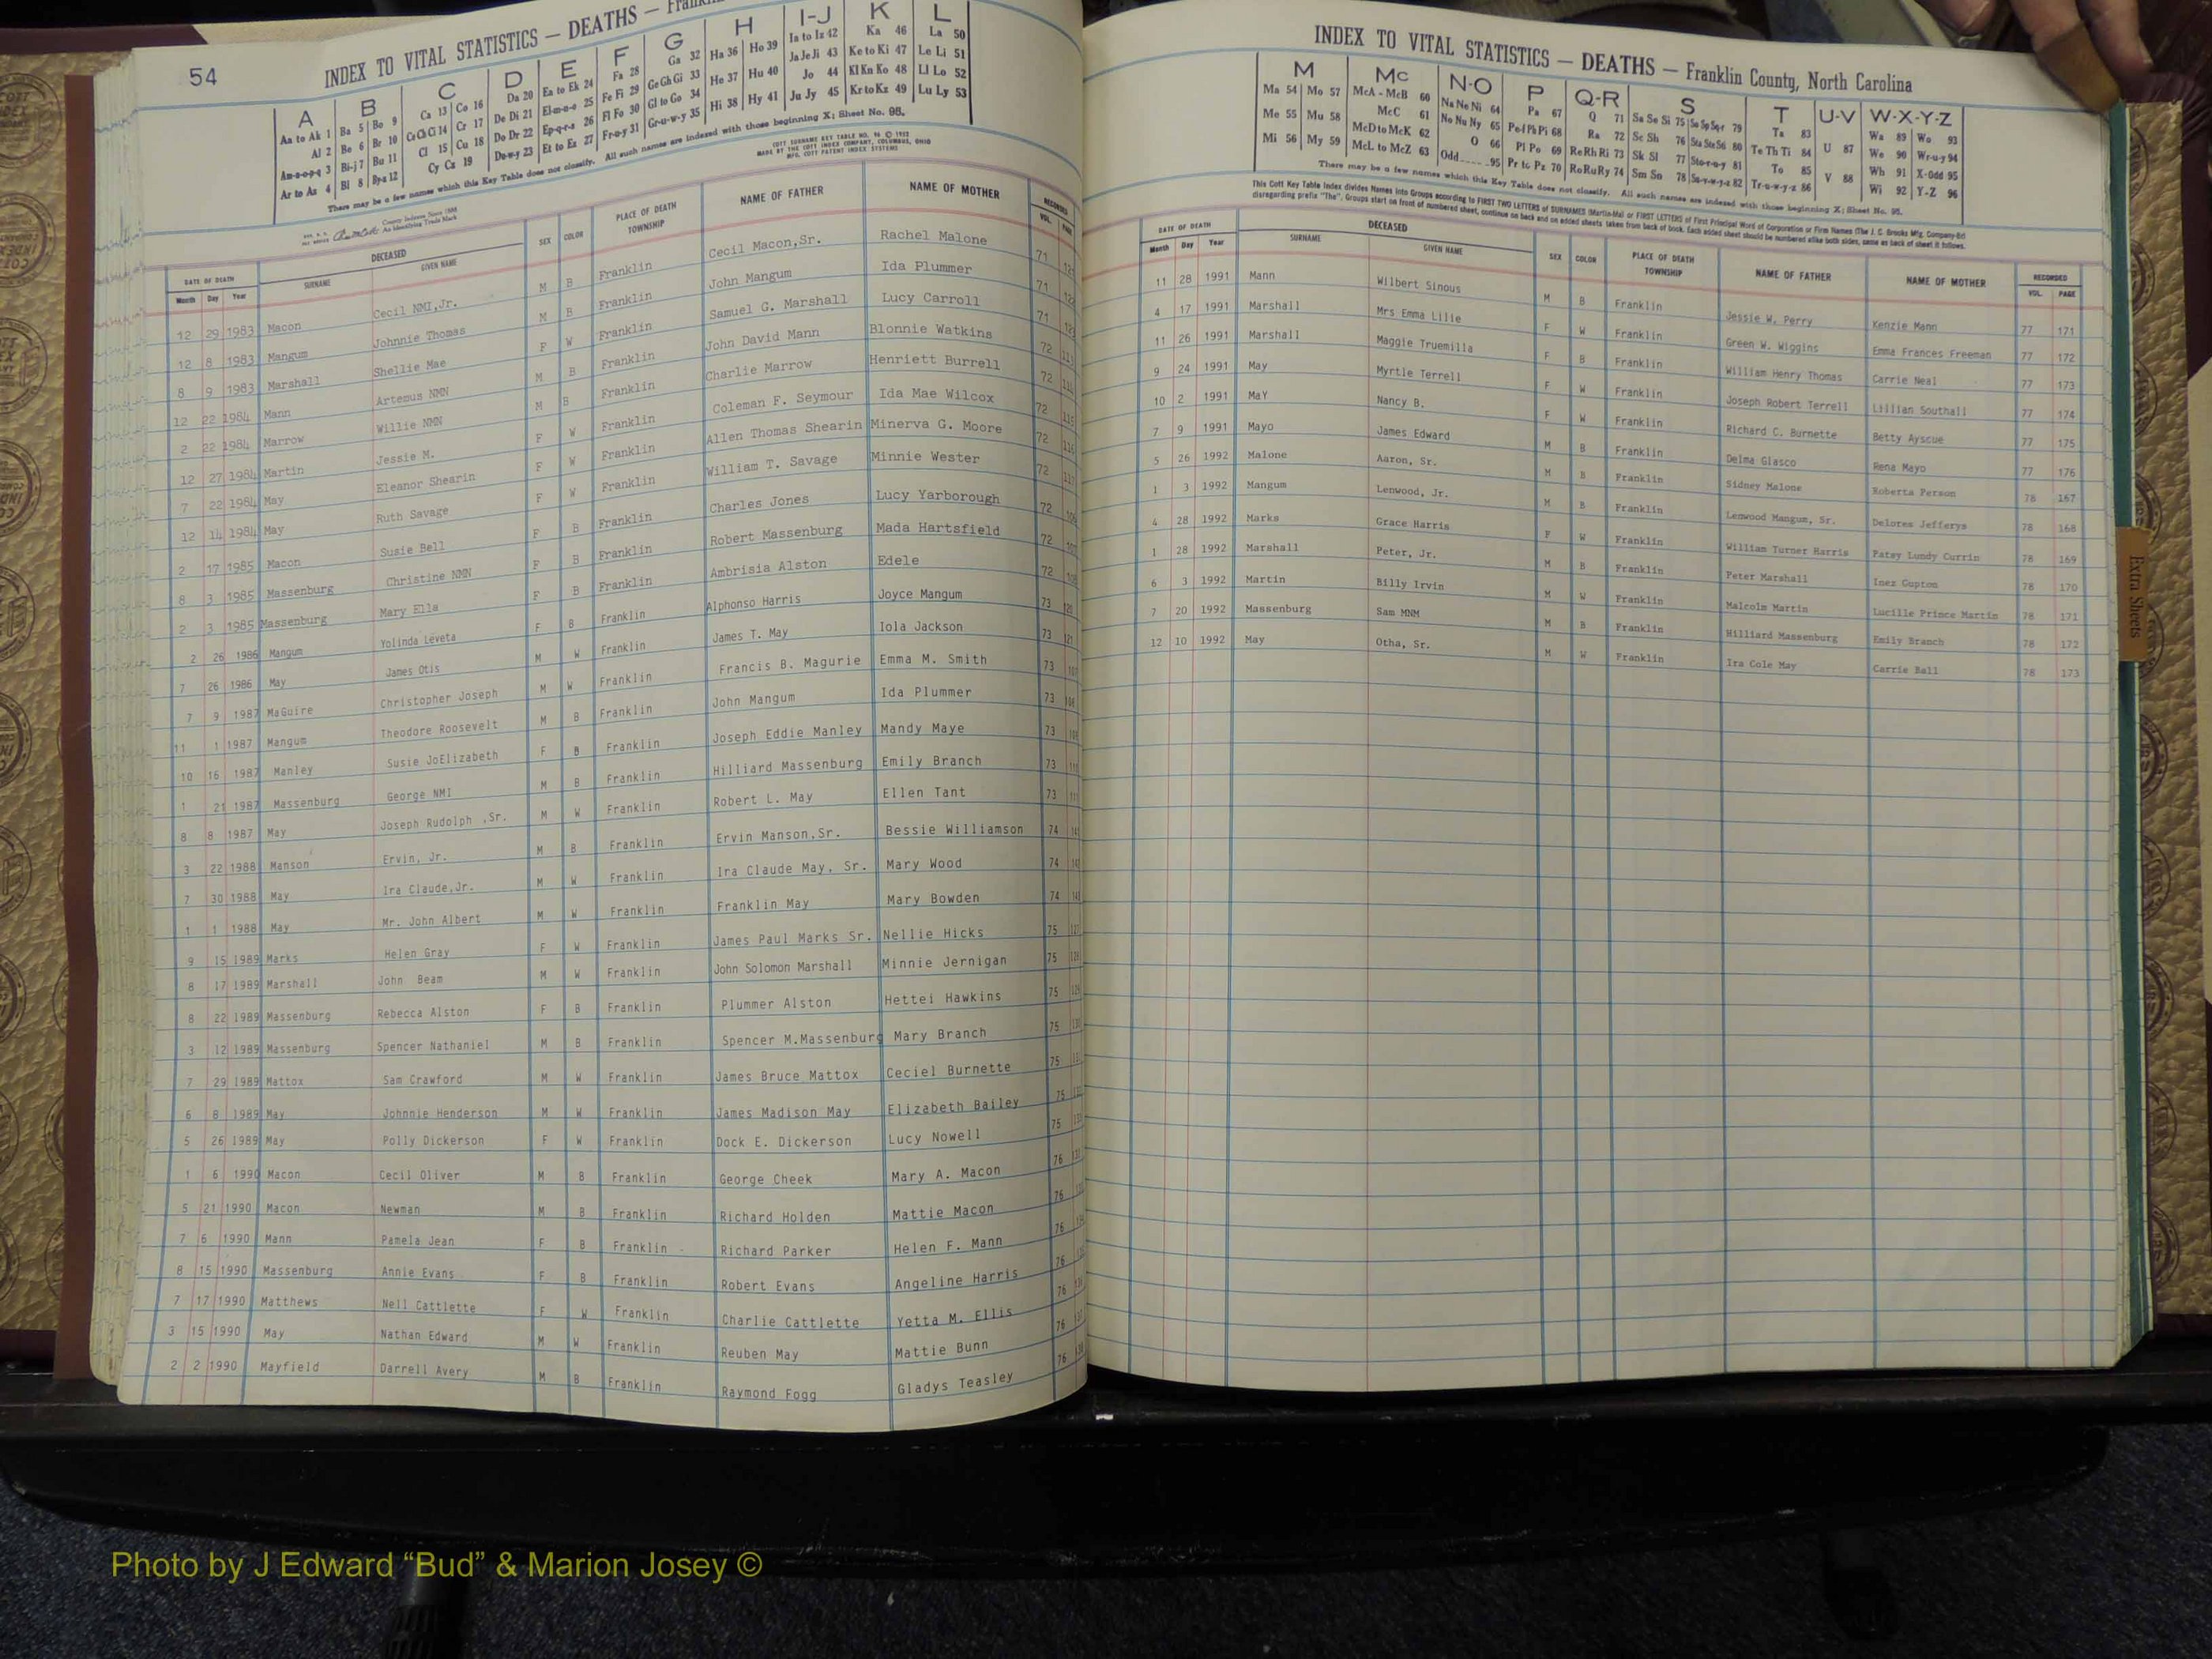 54
INDEX TO VITAL STATISTICS — DEATHS —
A B C D E F G H I-J K L
Aa to Ak 1 Ba 5 Bo 9 Ca 13 Co 16 Da 20 Ea to Ek 24 Fa 28 Ga 32 Ha 36 Ho 39 Ia to Iz 42 Ka 46 La 50
Al 2 Be 6 Br 10 Ce Ch Ci 14 Cr 17 De Di 21 El-m-n-o 25 Fe Fi 29 Ge Gh Gi 33 He 37 Hu 40 Ja Je Ji 43 Ke to Ki 47 Le Li 51
Am-n-o-p-q 3 Bi-j 7 Bu 11 Cl 15 Cu 18 Do Dr 22 Ep-q-r-s 26 Fl Fo 30 Gl to Go 34 Hi 38 Hy 41 Jo 44 Kl Kn Ko 48 Ll Lo 52
Ar to Az 4 Bl 8 By-z 12 Cy Cz 19 Du-w-y 23 Et to Ez 27 Fr-u-y 31 Gr-u-w-y 35 Ju Jy 45 Kr to Kz 49 Lu Ly 53
There may be a few names which this Key Table does not classify. All such names are indexed with those beginning X; Sheet No. 95.
COTT SURNAME KEY TABLE NO. 96 © 1952
MADE BY THE COTT INDEX COMPANY, COLUMBUS, OHIO
MFG. COTT PATENT INDEX SYSTEMS
County Indexes Since 1888
An Identifying Trade Mark
DATE OF DEATH DECEASED SEX COLOR PLACE OF DEATH TOWNSHIP NAME OF FATHER NAME OF MOTHER RECORDED
Month Day Year SURNAME GIVEN NAME VOL. PAGE
12 29 1983 Macon Cecil NMI,Jr. M B Franklin Cecil Macon,Sr. Rachel Malone 71
12 8 1983 Mangum Johnnie Thomas M B Franklin John Mangum Ida Plummer 71
8 9 1983 Marshall Shellie Mae F W Franklin Samuel G. Marshall Lucy Carroll 71
12 22 1984 Mann Artemus NMN M B Franklin John David Mann Blonnie Watkins 72
2 22 1984 Marrow Willie NMN M B Franklin Charlie Marrow Henriett Burrell 72
12 27 1984 Martin Jessie M. F W Franklin Coleman F. Seymour Ida Mae Wilcox 72
7 22 1984 May Eleanor Shearin F W Franklin Allen Thomas Shearin Minerva G. Moore 72
12 14 1984 May Ruth Savage F W Franklin William T. Savage Minnie Wester 72
2 17 1985 Macon Susie Bell F B Franklin Charles Jones Lucy Yarborough 72
8 3 1985 Massenburg Christine NMN F B Franklin Robert Massenburg Mada Hartsfield 72
2 3 1985 Massenburg Mary Ella F B Franklin Ambrisia Alston Edele 72
2 26 1986 Mangum Yolinda Leveta F B Franklin Alphonso Harris Joyce Mangum 73
7 26 1986 May James Otis M W Franklin James T. May Iola Jackson 73
7 9 1987 MaGuire Christopher Joseph M W Franklin Francis B. Magurie Emma M. Smith 73
11 1 1987 Mangum Theodore Roosevelt M B Franklin John Mangum Ida Plummer 73
10 16 1987 Manley Susie JoElizabeth F B Franklin Joseph Eddie Manley Mandy Maye 73
1 21 1987 Massenburg George NMI M B Franklin Hilliard Massenburg Emily Branch 73
8 8 1987 May Joseph Rudolph ,Sr. M W Franklin Robert L. May Ellen Tant 73
3 22 1988 Manson Ervin, Jr. M B Franklin Ervin Manson,Sr. Bessie Williamson 74
7 30 1988 May Ira Claude,Jr. M W Franklin Ira Claude May, Sr. Mary Wood 74
1 1 1988 May Mr. John Albert M W Franklin Franklin May Mary Bowden 74
9 15 1989 Marks Helen Gray F W Franklin James Paul Marks Sr. Nellie Hicks 75
8 17 1989 Marshall John Beam M W Franklin John Solomon Marshall Minnie Jernigan 75
8 22 1989 Massenburg Rebecca Alston F B Franklin Plummer Alston Hettei Hawkins 75
3 12 1989 Massenburg Spencer Nathaniel M B Franklin Spencer M.Massenburg Mary Branch 75
7 29 1989 Mattox Sam Crawford M W Franklin James Bruce Mattox Ceciel Burnette 75
6 8 1989 May Johnnie Henderson M W Franklin James Madison May Elizabeth Bailey 75
5 26 1989 May Polly Dickerson F W Franklin Dock E. Dickerson Lucy Nowell 75
1 6 1990 Macon Cecil Oliver M B Franklin George Cheek Mary A. Macon 76
5 21 1990 Macon Newman M B Franklin Richard Holden Mattie Macon 76
7 6 1990 Mann Pamela Jean F B Franklin Richard Parker Helen F. Mann 76
8 15 1990 Massenburg Annie Evans F B Franklin Robert Evans Angeline Harris 76
7 17 1990 Matthews Nell Cattlette F W Franklin Charlie Cattlette Yetta M. Ellis 76
3 15 1990 May Nathan Edward M W Franklin Reuben May Mattie Bunn 76
2 2 1990 Mayfield Darrell Avery M B Franklin Raymond Fogg Gladys Teasley 76
INDEX TO VITAL STATISTICS — DEATHS — Franklin County, North Carolina
M Mc N-O P Q-R S T U-V W-X-Y-Z
Ma 54 Mo 57 McA - McB 60 Na Ne Ni 64 Pa 67 Q 71 Sa Se Si 75 So Sp Sq-r 79 Ta 83 U 87 Wa 89 Wo 93
Me 55 Mu 58 McC 61 No Nu Ny 65 Pe-f Ph Pi 68 Ra 72 Sc Sh 76 Sta Ste Sti 80 Te Th Ti 84 V 88 We 90 Wr-u-y 94
Mi 56 My 59 McD to McK 62 O 66 Pl Po 69 Re Rh Ri 73 Sk Sl 77 Sto-r-u-y 81 To 85 Wh 91 X-Odd 95
McL to McZ 63 Odd 95 Pr to Pz 70 Ro Ru Ry 74 Sm Sn 78 Su-v-w-y-z 82 Tr-u-w-y-z 86 Wi 92 Y-Z 96
There may be a few names which this Key Table does not classify. All such names are indexed with those beginning X; Sheet No. 95.
This Cott Key Table Index divides Names into Groups according to FIRST TWO LETTERS of SURNAMES (Martin-Ma) or FIRST LETTERS of First Principal Word of Corporation or Firm Names (The J. C. Brooks Mfg. Company-Br)
disregarding prefix "The". Groups start on front of numbered sheet, continue on back and on added sheets taken from back of book. Each added sheet should be numbered alike both sides, same as back of sheet it follows.
DATE OF DEATH DECEASED SEX COLOR PLACE OF DEATH TOWNSHIP NAME OF FATHER NAME OF MOTHER RECORDED
Month Day Year SURNAME GIVEN NAME VOL. PAGE
11 28 1991 Mann Wilbert Sinous M B Franklin Jessie W. Perry Kenzie Mann 77 171
4 17 1991 Marshall Mrs Emma Lilie F W Franklin Green W. Wiggins Emma Frances Freeman 77 172
11 26 1991 Marshall Maggie Truemilla F B Franklin William Henry Thomas Carrie Neal 77 173
9 24 1991 May Myrtle Terrell F W Franklin Joseph Robert Terrell Lillian Southall 77 174
10 2 1991 MaY Nancy B. F W Franklin Richard C. Burnette Betty Ayscue 77 175
7 9 1991 Mayo James Edward M B Franklin Delma Glasco Rena Mayo 77 176
5 26 1992 Malone Aaron, Sr. M B Franklin Sidney Malone Roberta Person 78 167
1 3 1992 Mangum Lenwood, Jr. M B Franklin Lenwood Mangum, Sr. Delores Jefferys 78 168
4 28 1992 Marks Grace Harris F W Franklin William Turner Harris Patsy Lundy Currin 78 169
1 28 1992 Marshall Peter, Jr. M B Franklin Peter Marshall Inez Gupton 78 170
6 3 1992 Martin Billy Irvin M W Franklin Malcolm Martin Lucille Prince Martin 78 171
7 20 1992 Massenburg Sam MNM M B Franklin Hilliard Massenburg Emily Branch 78 172
12 10 1992 May Otha, Sr. M W Franklin Ira Cole May Carrie Ball 78 173
Extra Sheets
Photo by J Edward “Bud” & Marion Josey ©